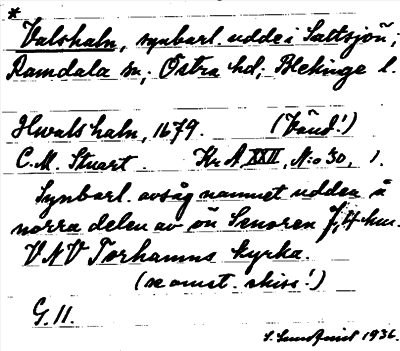 *
Valshaln, synbarl. udde i Saltsjön;
Ramdala sn; Östra hd; Blekinge l.
Hwals haln, 1679. (Vänd!)
C.M. Stuart. Kr A XXII, N:o 30, 1.
Synbarl. avsåg namnet udden å
norra delen av ön Senoren,
VNV Torhamns kyrka.
(se omst. skiss!)
G. 11.
S. Sundquist 1936.